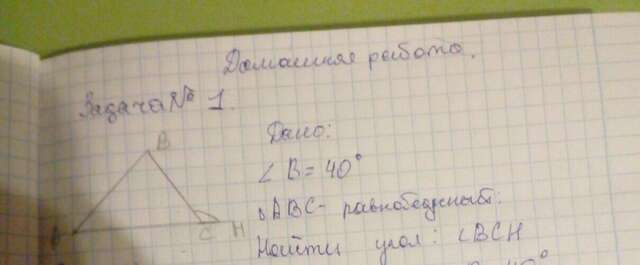 Домашняя работа.
Задача № 1.
Дано:
∠B = 40°
△ABC - равнобедренный:
Найти угол: ∠BCH
B
C
H